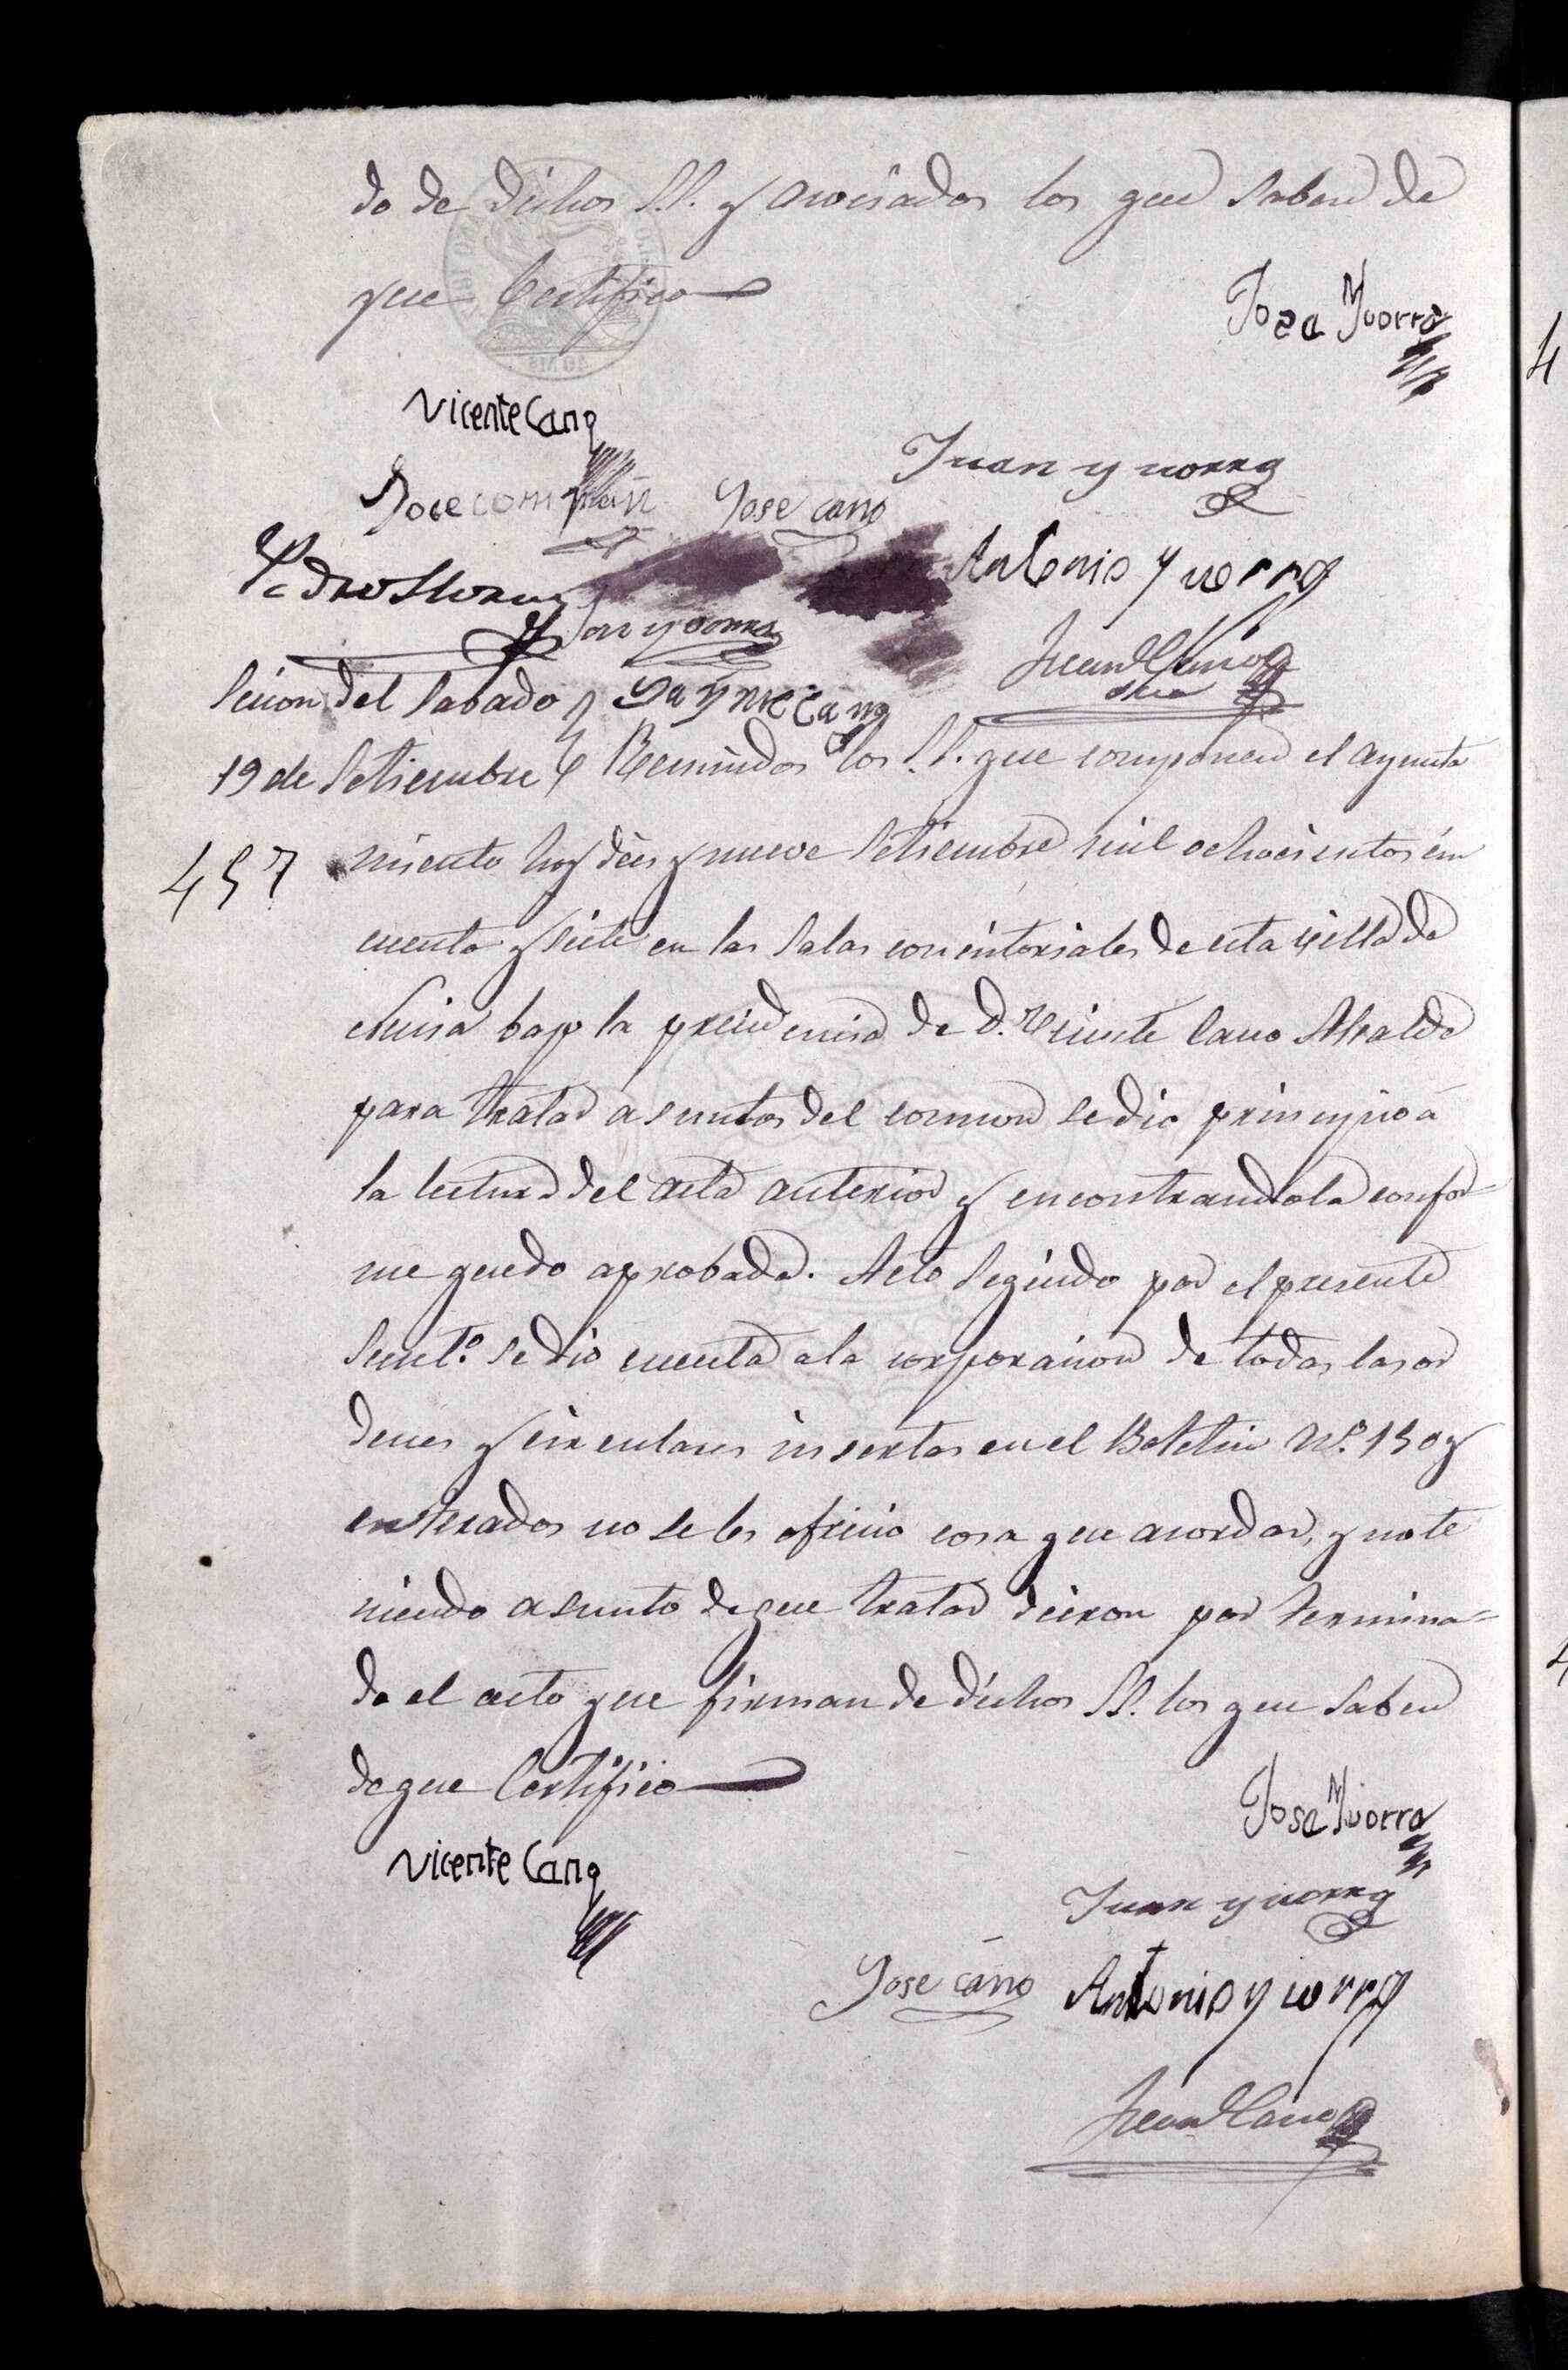 do de dichos S.S. y asociados los que saben de
que Certifico
Jose Yvorra
Vicente Cano
Juan yvorra
Jose
Jose cano
Antonio Yvorra
Pedro Llorens
yvorra
Juan Cano
Srio
Jayme Cano
Sesion del Sabado
19 de Setiembre
Reunidos los S.S. que componen el ayunta
457
miento hoy dies y nueve Setiembre mil ochocientos cin
cuenta y siete en las Salas consistoriales de esta villa de
bajo la presidencia de D. Vicente Cano Alcalde
para tratar asuntos del comun se dio principio a
la lectura del acta anterior y encontrandola confor=
me quedo aprobada. Acto Seguido por el presente
Secret.º se dio cuenta a la corporacion de todas las or
denes y circulares insertas en el Boletin Nº. 130 y
enterados no se les ofrecio cosa que acordar, y no te
niendo asunto de que tratar dieron por termina=
do el acto que firman de dichos S.S. los que saben
de que Certifico
Jose Yvorra
Vicente Cano
Juan yvorra
Jose cano
Antonio yvorra
Juan Cano